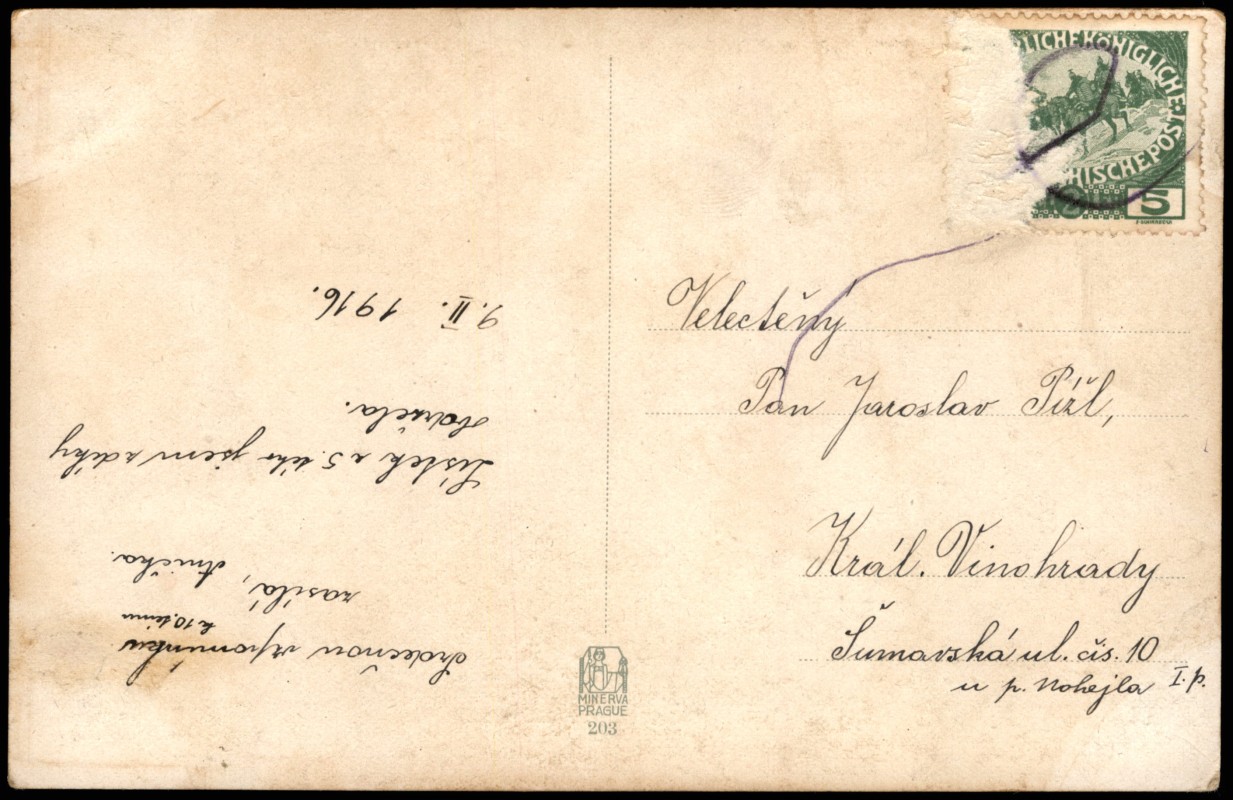 RLICHE KÖNIGLICHE
HISCHE POST
5
Velectěný
Pan Jaroslav Pížl,
Král. Vinohrady
Šumavská ul. čís. 10
I. p.
u p. Nohejla
Srdečnou vzpomínku
k 10. tému
zasílá, Anička.
Lístek z 5. tého jsem s díky
obdržela.
9. II. 1916.
MINERVA
PRAGUE
203